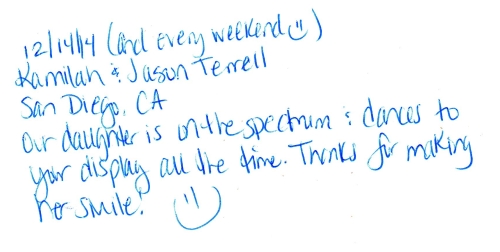 12/14/14 (and every weekend :))
Kamilah & Jason Terrell
San Diego, CA
Our daughter is on the spectrum & dances to
your display all the time. Thanks for making
her smile! :)